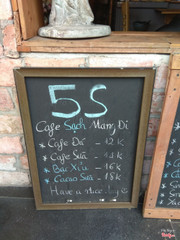 5S
Cafe Sạch Mang Đi
* Cafe Đá - 12k
* Cafe Sữa -
* Bạc Xíu - 16k
* Cacao Sữa - 18k
Have a nice